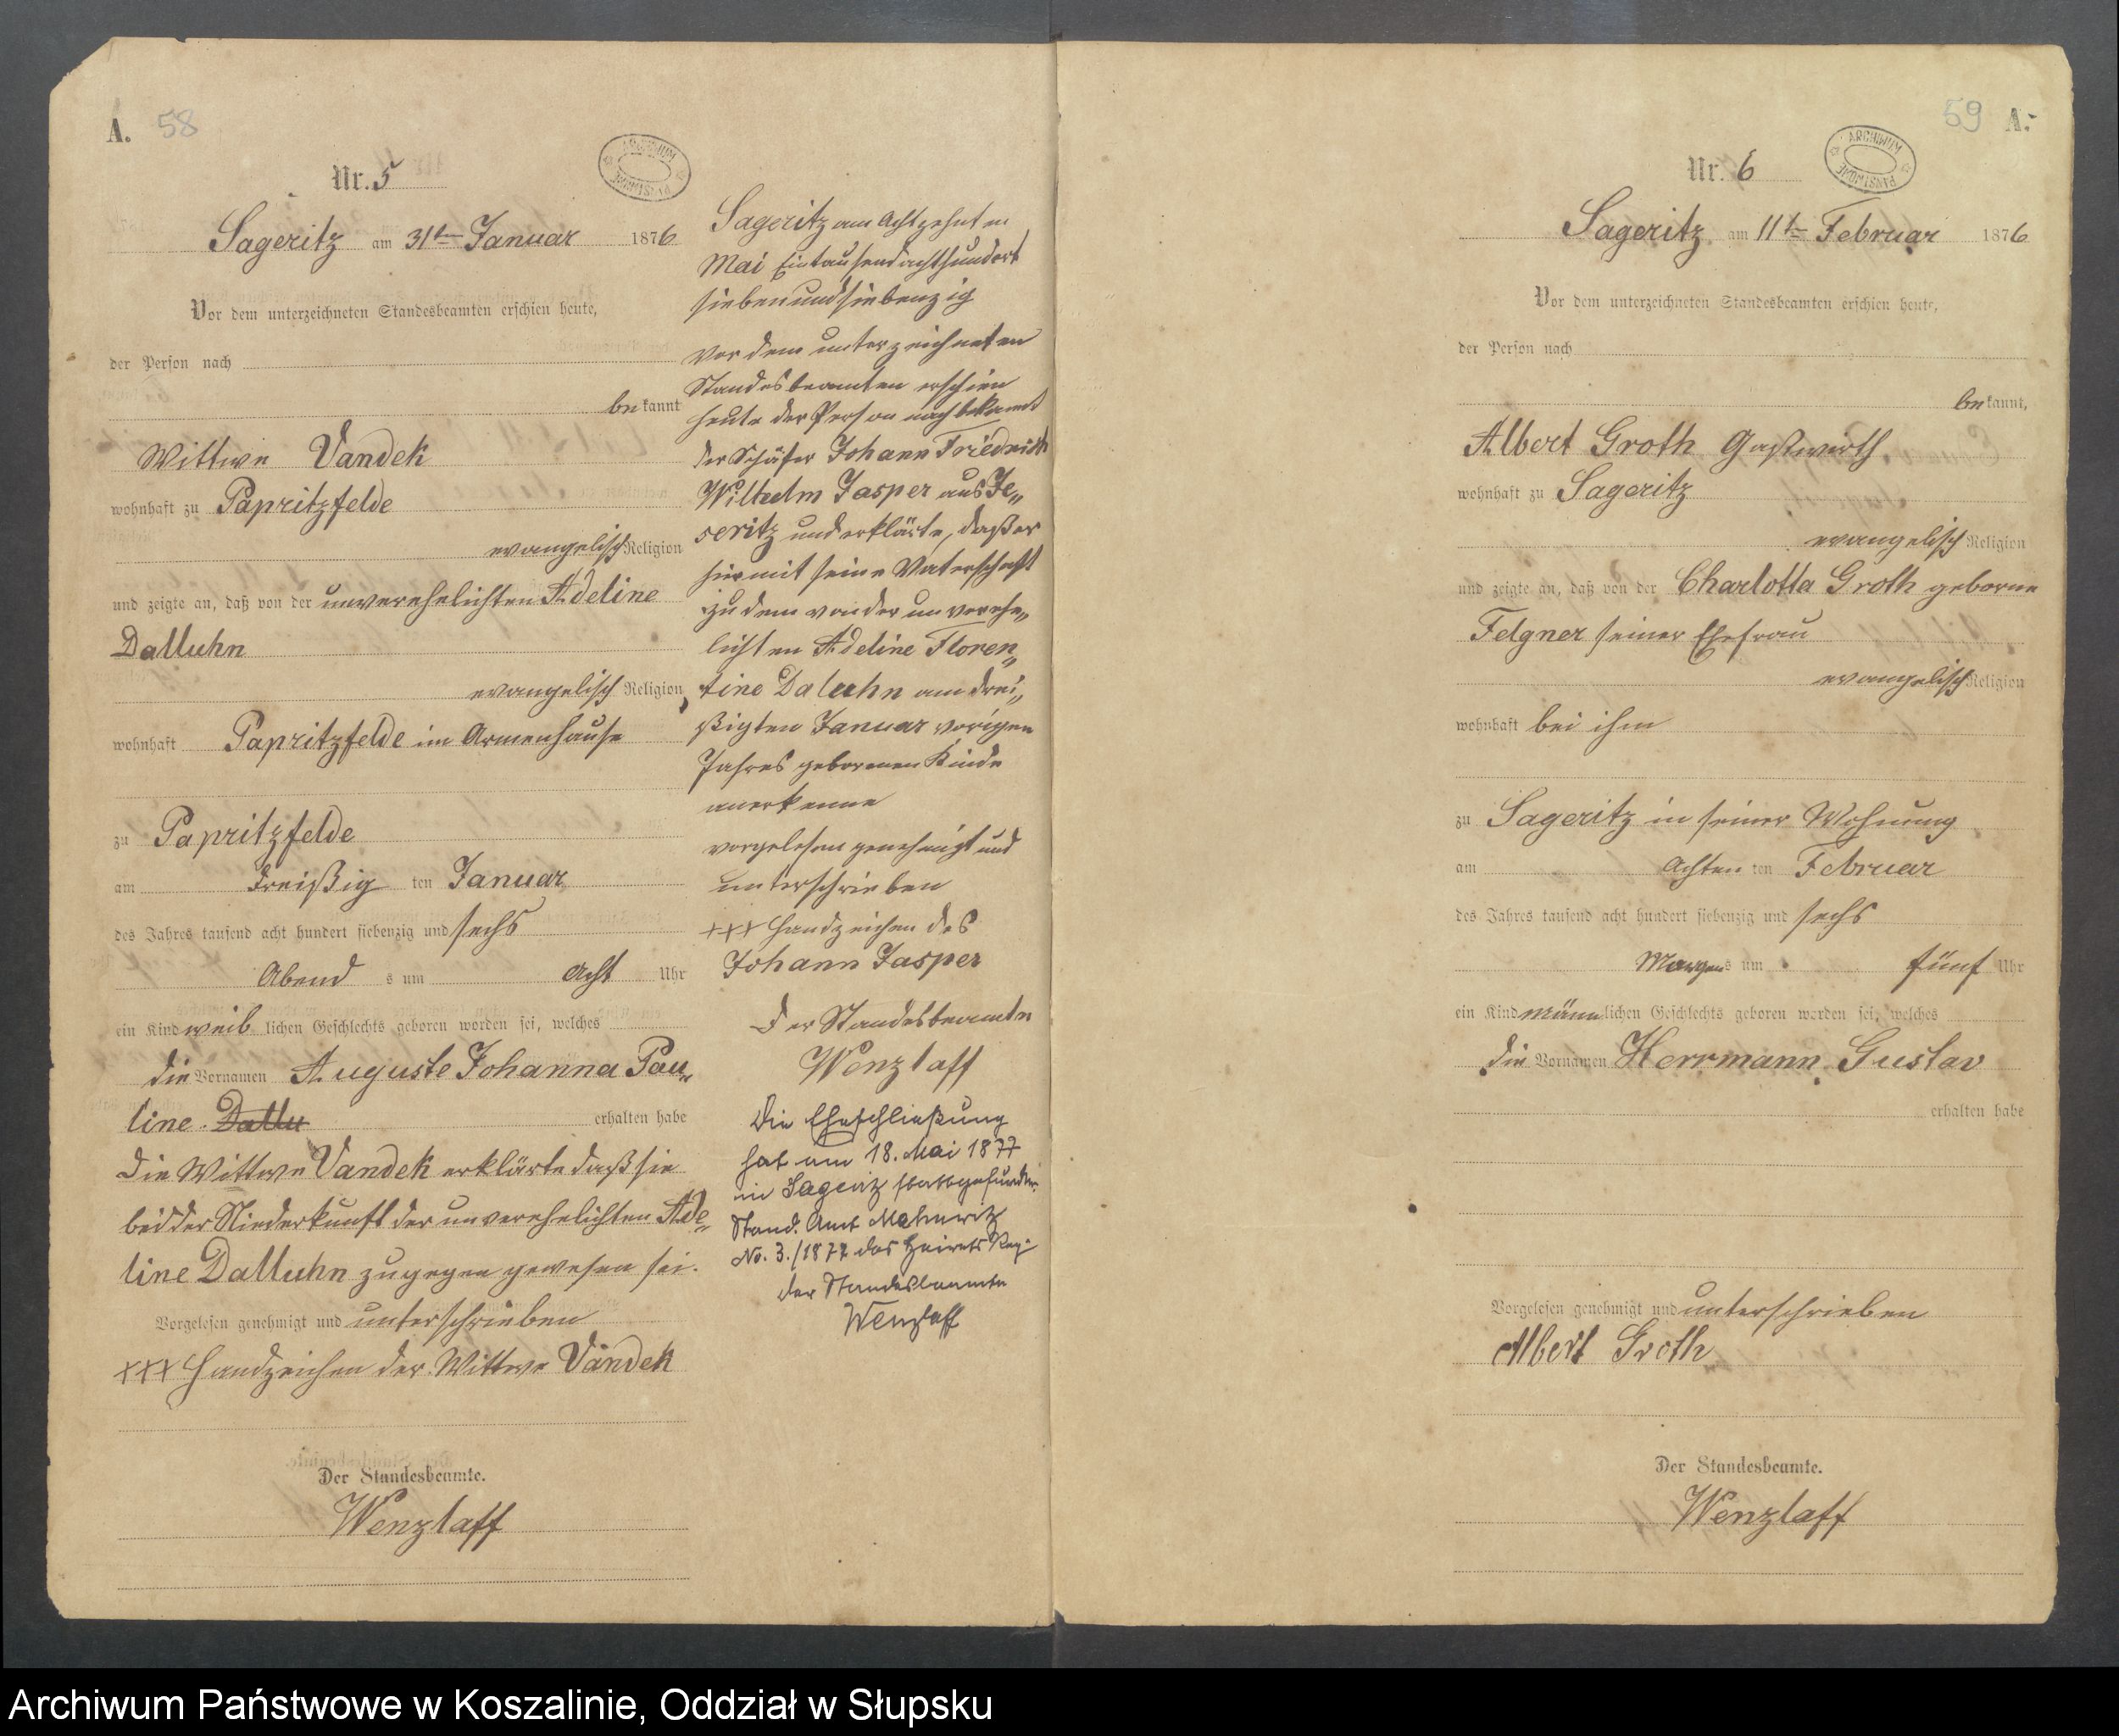 A. 58
ARCHIWUM PAŃSTWOWE
Nr. 5
Sageritz am 31ten Januar 1876
Vor dem unterzeichneten Standesbeamten erschien heute,
der Person nach
bekannt
Wittwe Vandek
wohnhaft zu Papritzfelde
evangelisch Religion
und zeigte an, daß von der unverehelichten Adeline
Dalluhn
evangelisch Religion,
wohnhaft Papritzfelde im Armenhause
zu Papritzfelde
am dreißig ten Januar
des Jahres tausend acht hundert siebenzig und sechs
Abend s um Acht Uhr
ein Kind weib lichen Geschlechts geboren worden sei, welches
die Vornamen Auguste Johanna Pau„
line. Dallu erhalten habe
Die Wittwe Vandek erklärte daß sie
bei der Niederkunft der unverehelichten Ade„
line Dalluhn zugegen gewesen sei.
Vorgelesen genehmigt und unterschrieben
+++ Handzeichen der Wittwe Vandek
Der Standesbeamte.
Wenzlaff
Sageritz am Achtzehnten
Mai Eintausendachthundert
siebenundsiebenzig
Vor dem unterzeichneten
Standesbeamten erschien
heute der Person nach bekannt
der Schäfer Johann Friedrich
Wilhelm Jasper aus Je„
seritz und erklärte, daß er
hiermit seine Vaterschaft
zu dem von der unverehe„
lichten Adeline Floren„
tine Daluhn am drei„
ßigten Januar vorigen
Jahres geborenen Kinde
anerkenne
vorgelesen genehmigt und
unterschrieben
+++ Handzeichen des
Johann Jasper
Der Standesbeamte
Wenzlaff
Die Eheschließung
hat am 18. Mai 1877
in Sageritz stattgefunden.
Stand. Amt
No. 3./1877 des Heirats Reg.
der Standesbeamte
Wenzlaff
59 A.
ARCHIWUM PAŃSTWOWE
Nr. 6
Sageritz am 11ten Februar 1876
Vor dem unterzeichneten Standesbeamten erschien heute,
der Person nach
bekannt,
Albert Groth Gastwirth
wohnhaft zu Sageritz
evangelisch Religion
und zeigte an, daß von der Charlotta Groth geborne
Felgner seiner Ehefrau
evangelisch Religion
wohnhaft bei ihm
zu Sageritz in seiner Wohnung
am Achten ten Februar
des Jahres tausend acht hundert siebenzig und sechs
Morgens um fünf Uhr
ein Kind männlichen Geschlechts geboren worden sei, welches
die Vornamen Herrmann Gustav
erhalten habe
Vorgelesen genehmigt und unterschrieben
Albert Groth
Der Standesbeamte.
Wenzlaff
Archiwum Państwowe w Koszalinie, Oddział w Słupsku